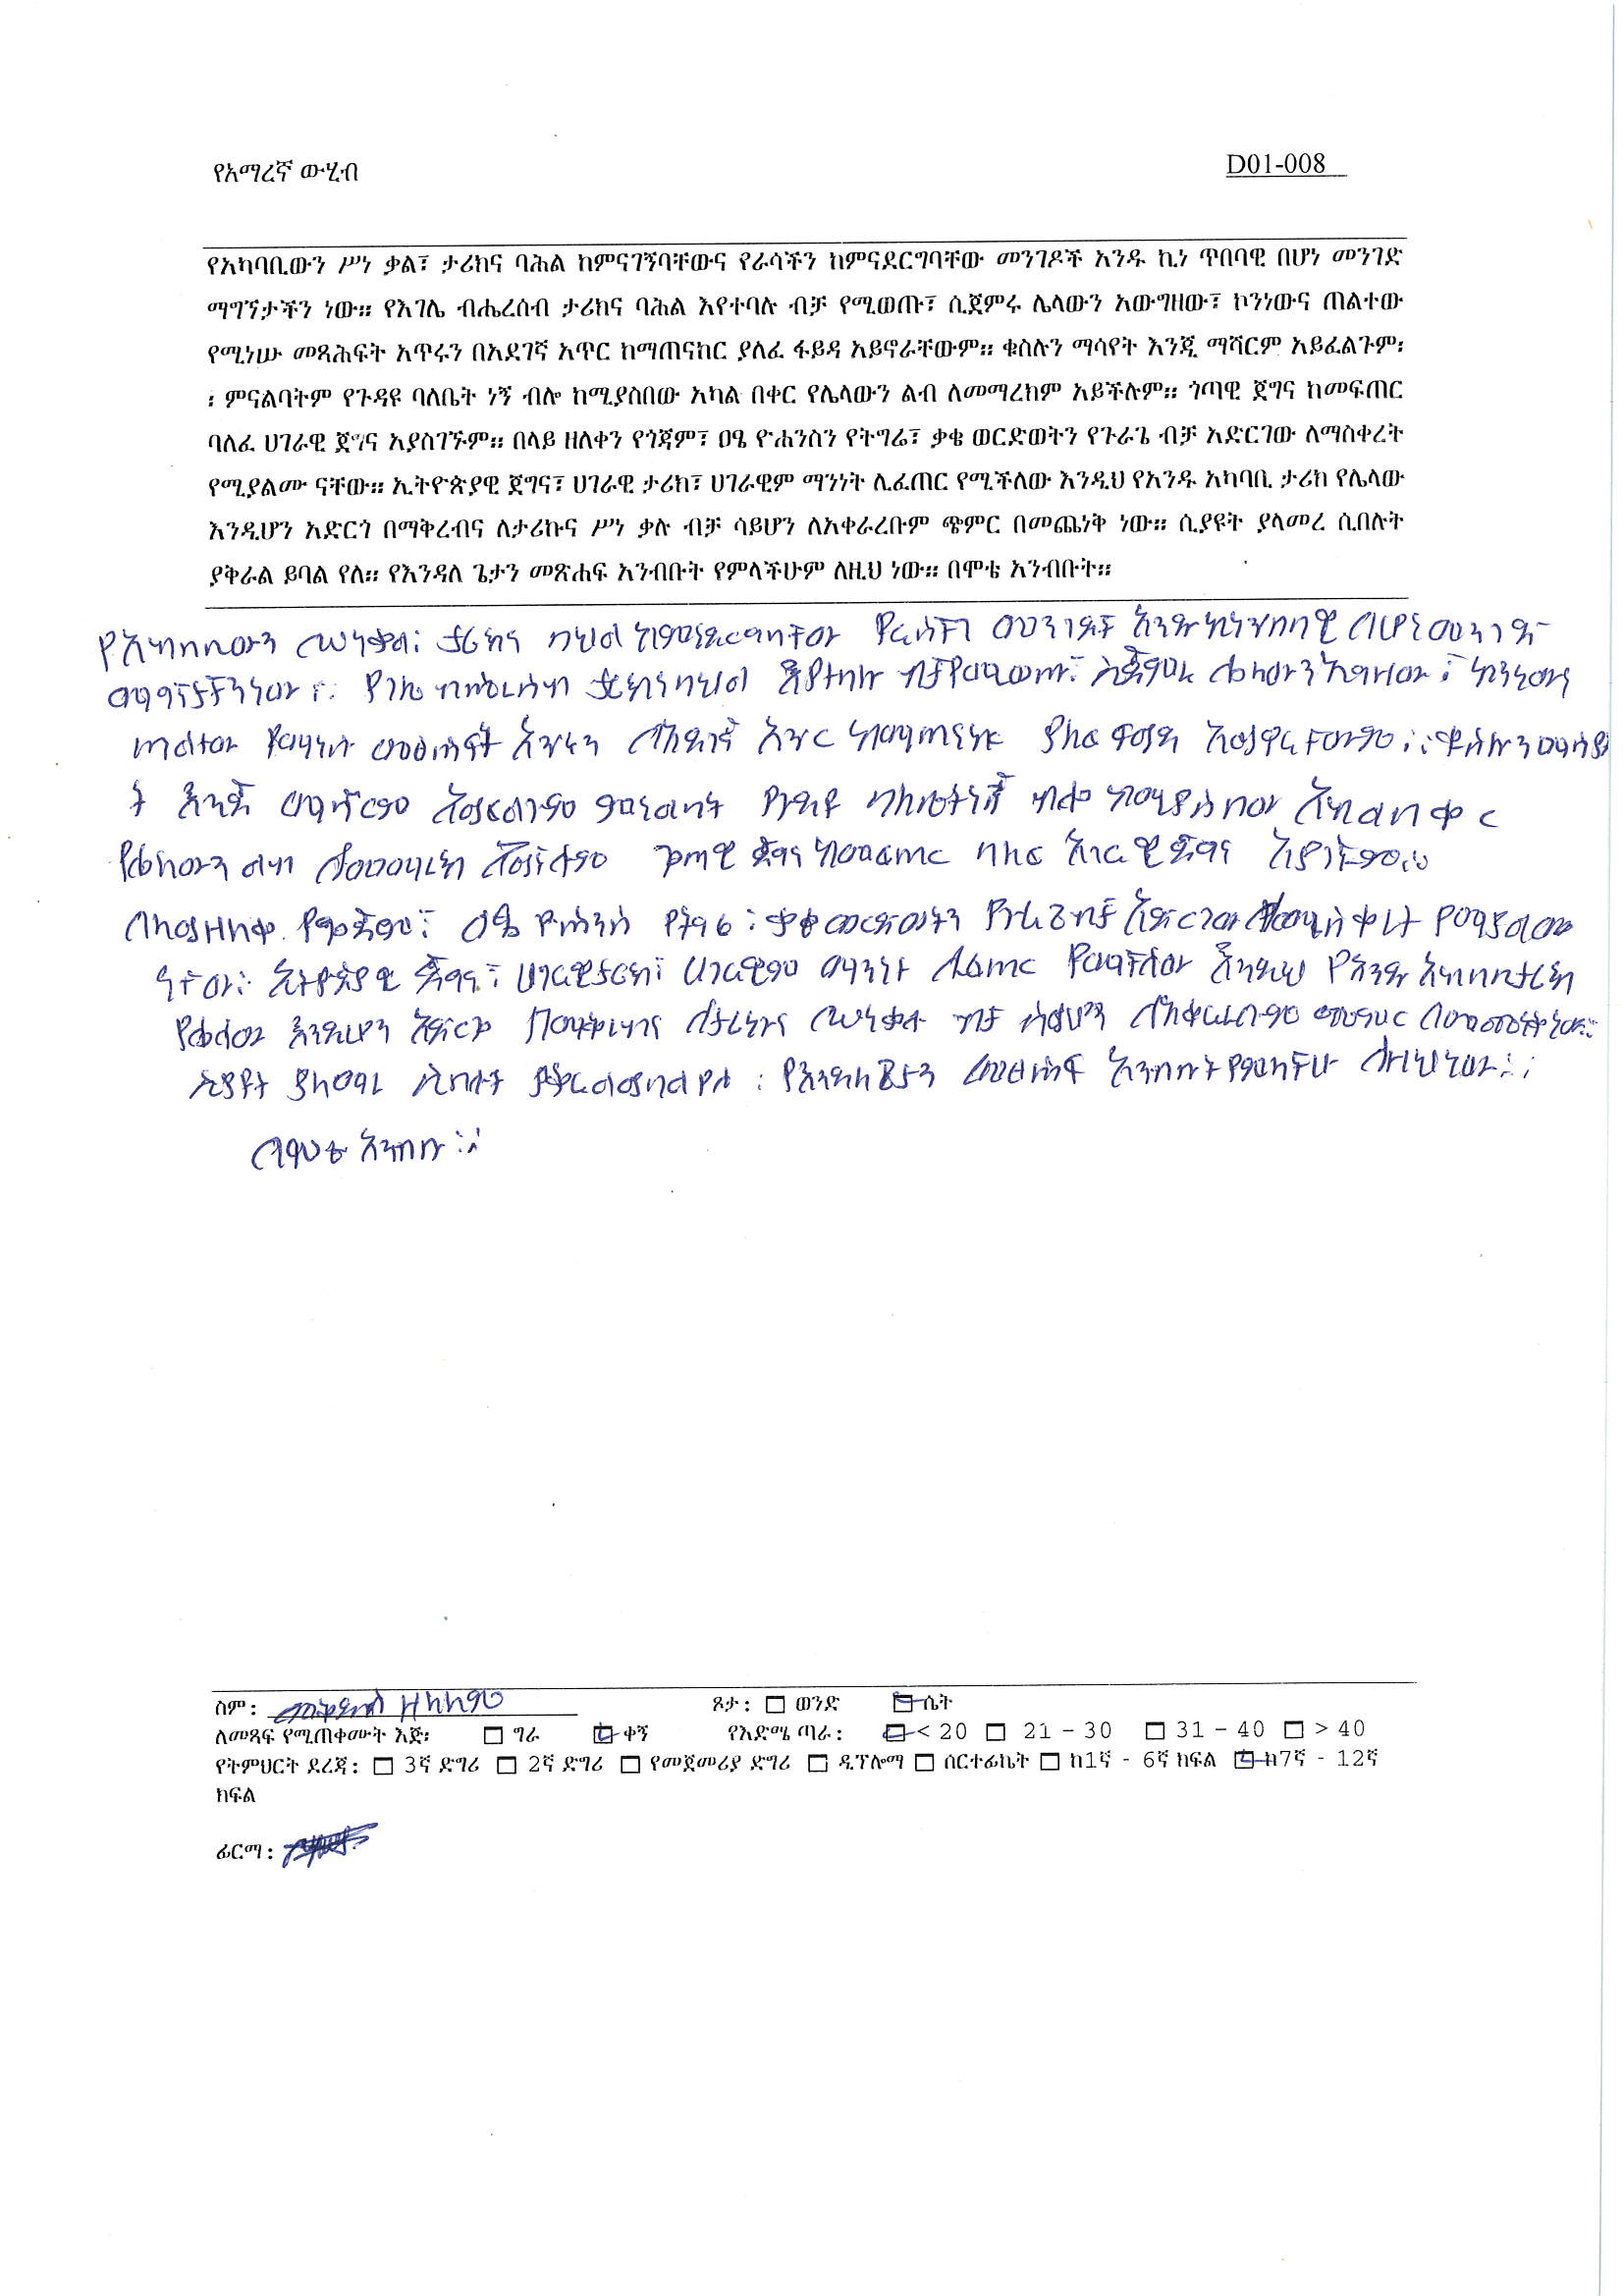 የአማረኛ ውሂብ
D01-008
የአካባቢውን ሥነ ቃል፣ ታሪክና ባሕል ከምናገኝባቸውና የራሳችን ከምናደርግባቸው መንገዶች አንዱ ኪነ ጥበባዊ በሆነ መንገድ
ማግኘታችን ነው። የእገሌ ብሔረሰብ ታሪክና ባሕል እየተባሉ ብቻ የሚወጡ፣ ሲጀምሩ ሌላውን አውግዘው፣ ኮንነውና ጠልተው
የሚነሡ መጻሕፍት አጥሩን በአደገኛ አጥር ከማጠናከር ያለፈ ፋይዳ አይኖራቸውም። ቁስሉን ማሳየት እንጂ ማሻርም አይፈልጉም፡
፡ ምናልባትም የጉዳዩ ባለቤት ነኝ ብሎ ከሚያስበው አካል በቀር የሌላውን ልብ ለመማረክም አይችሉም። ጎጣዊ ጀግና ከመፍጠር
ባለፈ ሀገራዊ ጀግና አያስገኙም። በላይ ዘለቀን የጎጃም፣ ዐፄ ዮሐንስን የትግሬ፣ ቃቄ ወርድወትን የጉራጌ ብቻ አድርገው ለማስቀረት
የሚያልሙ ናቸው። ኢትዮጵያዊ ጀግና፣ ሀገራዊ ታሪክ፣ ሀገራዊም ማንነት ሊፈጠር የሚችለው እንዲህ የአንዱ አካባቢ ታሪክ የሌላው
እንዲሆን አድርጎ በማቅረብና ለታሪኩና ሥነ ቃሉ ብቻ ሳይሆን ለአቀራረቡም ጭምር በመጨነቅ ነው። ሲያዩት ያላመረ ሲበሉት
ያቅራል ይባል የለ። የእንዳለ ጌታን መጽሐፍ አንብቡት የምላችሁም ለዚህ ነው። በሞቴ አንብቡት።
የአካባቢውን ሥነቃል፣ ታሪክና ባህል የራሳችን መንገዶች አንዱ ኪነጥበባዊ በሆነ መንገድ
ማግኘታችን ነው። የገሌ ብሔረሰብ ታሪክና ባህል እየተባሉ ብቻ የሚወጡ፣ ሲጀምሩ ሌላውን አውግዘው፣ ኮንነውና
ጠልተው የሚነሱ መፅሐፍት አጥሩን በአደገኛ አጥር ከማጠናከር ያለፈ ፋይዳ አይኖራቸውም።ቁስሉን ማሳየ
ት እንጂ ማሻርም አይፈልጉም ምናልባት የጉዳዩ ባለቤት ነኝ ብሎ ከሚያስበው አካል በቀር
የሌላውን ልብ ለመማረክ አይችሉም ጎጣዊ ጀግና ከመፈጠር ባለፈ አገራዊ ጀግና አያገኙም።
በላይ ዘለቀ የጎጃም፣ ዐፄ ዮሐንስ የትግሬ፣ ቃቄ ወርድወትን የጉራጌ ብቻ አድርገው ለማስቀረት የሚያልሙ
ናቸው። ኢትዮጵያዊ ጀግና፣ ሀገራዊ ታሪክ፣ ሀገራዊም ማንነት ሊፈጠር የሚችለው እንዲህ የአንዱ አካባቢ ታሪክ
የሌላው እንዲሆን አድርጎ በማቅረብና ለታሪኩና ሥነቃሉ ብቻ ሳይሆን ለአቀራረቡም ጭምር በመጨነቅ ነው።
ሲያዩት ያላማረ ሲበሉት ያቅራል ይባል የለ። የእንዳለ ጌታን መፅሐፍ አንብቡት የምላችሁ ለዚህ ነው።
በሞቴ አንብቡ።
ስም: ዘላለም
ጾታ: ወንድ ሴት
ለመጻፍ የሚጠቀሙት እጅ፡ ግራ ቀኝ የእድሜ ጣራ: < 20 21 - 30 31 - 40 > 40
የትምህርት ደረጃ: 3ኛ ድግሪ 2ኛ ድግሪ የመጀመሪያ ድግሪ ዲፕሎማ ሰርተፊኬት ከ1ኛ - 6ኛ ክፍል ከ7ኛ - 12ኛ
ክፍል
ፊርማ: